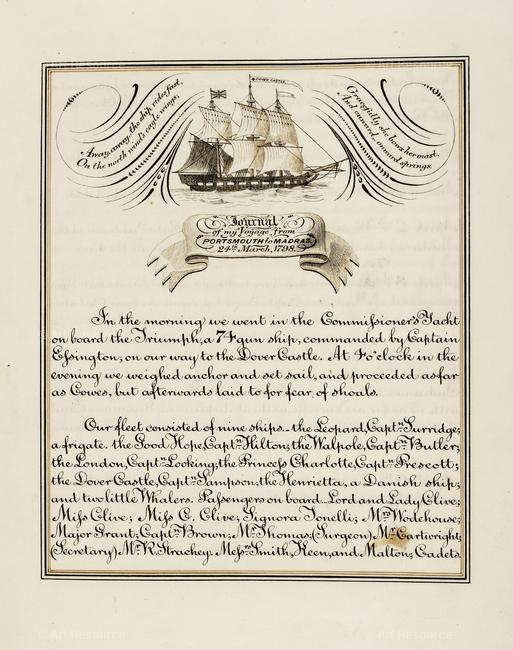 DOVER CASTLE
Away, away, the ship rides fast,
On the north wind's eagle wings;
Gracefully she bows her mast,
And onward, onward springs.
Journal
of my Voyage from
PORTSMOUTH to MADRAS.
24th March, 1798.
In the morning we went in the Commissioner's Yacht
on board the Triumph, a 74 gun ship, commanded by Captain
Essington, on our way to the Dover Castle. At 4 o'clock in the
evening we weighed anchor and set sail, and proceeded as far
as Cowes, but afterwards laid to for fear of shoals.
Our fleet consisted of nine ships.- the Leopard, Captn Surridge;
a frigate. the Good Hope, Captn Hilton; the Walpole, Captn Butler;
the London, Captn Looking; the Princess Charlotte, Captn Prescott;
the Dover Castle, Captn Sampson; the Henrietta, a Danish ship;
and two little Whalers. Passengers on board - Lord and Lady Clive;
Miss Clive; Miss C. Clive; Signora Tonelli; Mrs Wodehouse;
Major Grant; Captn Brown; Mr Thomas; (Surgeon) Mr Cartwright;
(Secretary) Mr R. Strachey. Messrs Smith, Keen, and Malton; Cadets
Art Resource
Art Resource